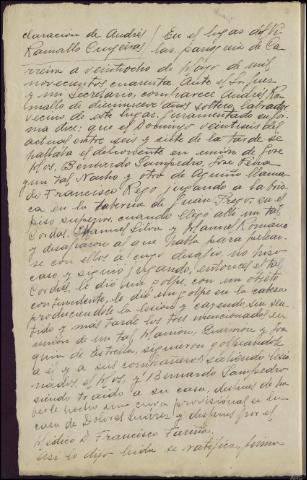 claración de Andrés / En el lugar del Vi
Ramallo Cerqeiras las parroquia de Ca-
rreira a veintiocho de Mayo de mil
novecientos cuarenta. Ante el Sr Juez
y mi Secretario, comparece Andrés Ra-
mallo de diecinueve años soltero, labrador
vecino de este lugar, juramentado en for-
ma dice: que el Domingo veintiseis del
actual entre seis y siete de la tarde se
hallaba el deponente en unión de José
Mos, Bernardo Sampedro, José
un tal Nacho y otro de Aguiño llama-
do Francisco Rego, jugando a la bris-
ca en la taberna de Juan Frejo en el
piso superior, cuando llegó allí un tal
Cordal, Manuel Silva y Manuel Romano
y desafiaron al que habla para pelear-
se con ellos a cuyo desafío no hizo
caso y siguió jugando, entonces el tal
Cordal le dió un golpe con un objeto
contundente, le dió un golpe en la cabeza
produciendole la lesión y cayendo sin sen-
tido y mas tarde los tres mencionados en
unión de un tal Ramón, German y Joa-
quin de Estrella, siguieron golpeandole
a el y a sus compañeros saliendo lesio-
nados el Mos, y Bernardo Sampedro
siendo traido a su casa, despues de ha-
berle hecho una cura provisional en la
casa de Dolores Suárez y despues por el
Médico D. Francisco Fariña.
Así lo dijo leida se ratifica, firma-